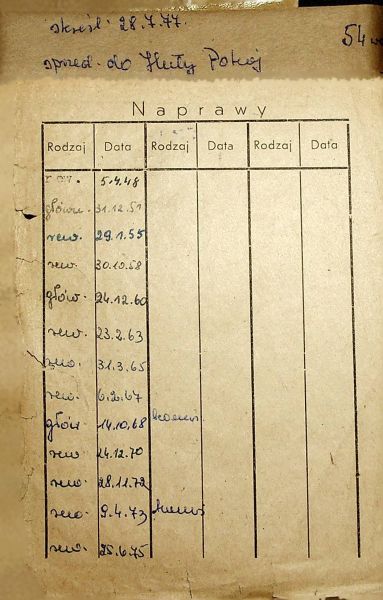 skreśl. 28.7.77.
54
sprzed. do Huty Pokój
Naprawy
Rodzaj Data Rodzaj Data Rodzaj Data
5.4.48
główn. 31.12.51
rew. 29.1.55
rew. 30.10.58
głów. 24.12.60
rew. 23.2.63
rew. 31.3.65
rew. 6.2.67
głów. 14.10.68
rew. 14.12.70
rew. 28.11.72
rew. 9.4.73
rew. 25.6.75